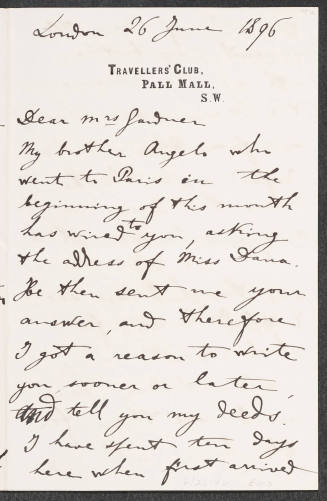 London 26 June 1896
TRAVELLERS' CLUB,
PALL MALL,
S.W.
Dear Mrs Gardner
My brother Angelo who
went to Paris in the
beginning of this month
has wired to you, asking
the address of Miss Dana.
He then sent me your
answer, and therefore
I got a reason to write
you sooner or later,
and tell you my deeds.
I have spent ten days
here when first arrived